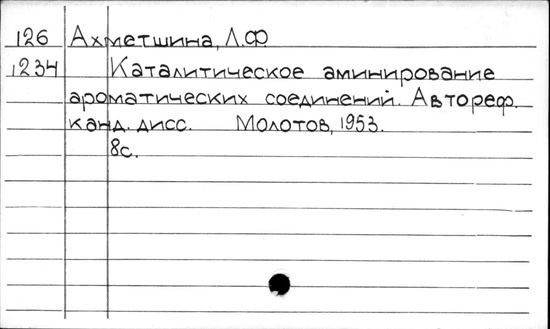 126 Ахметшина, Л.Ф
1234 Каталитическое аминирование
ароматических соединений. Автореф.
канд. дисс. Молотов, 1953.
8с.